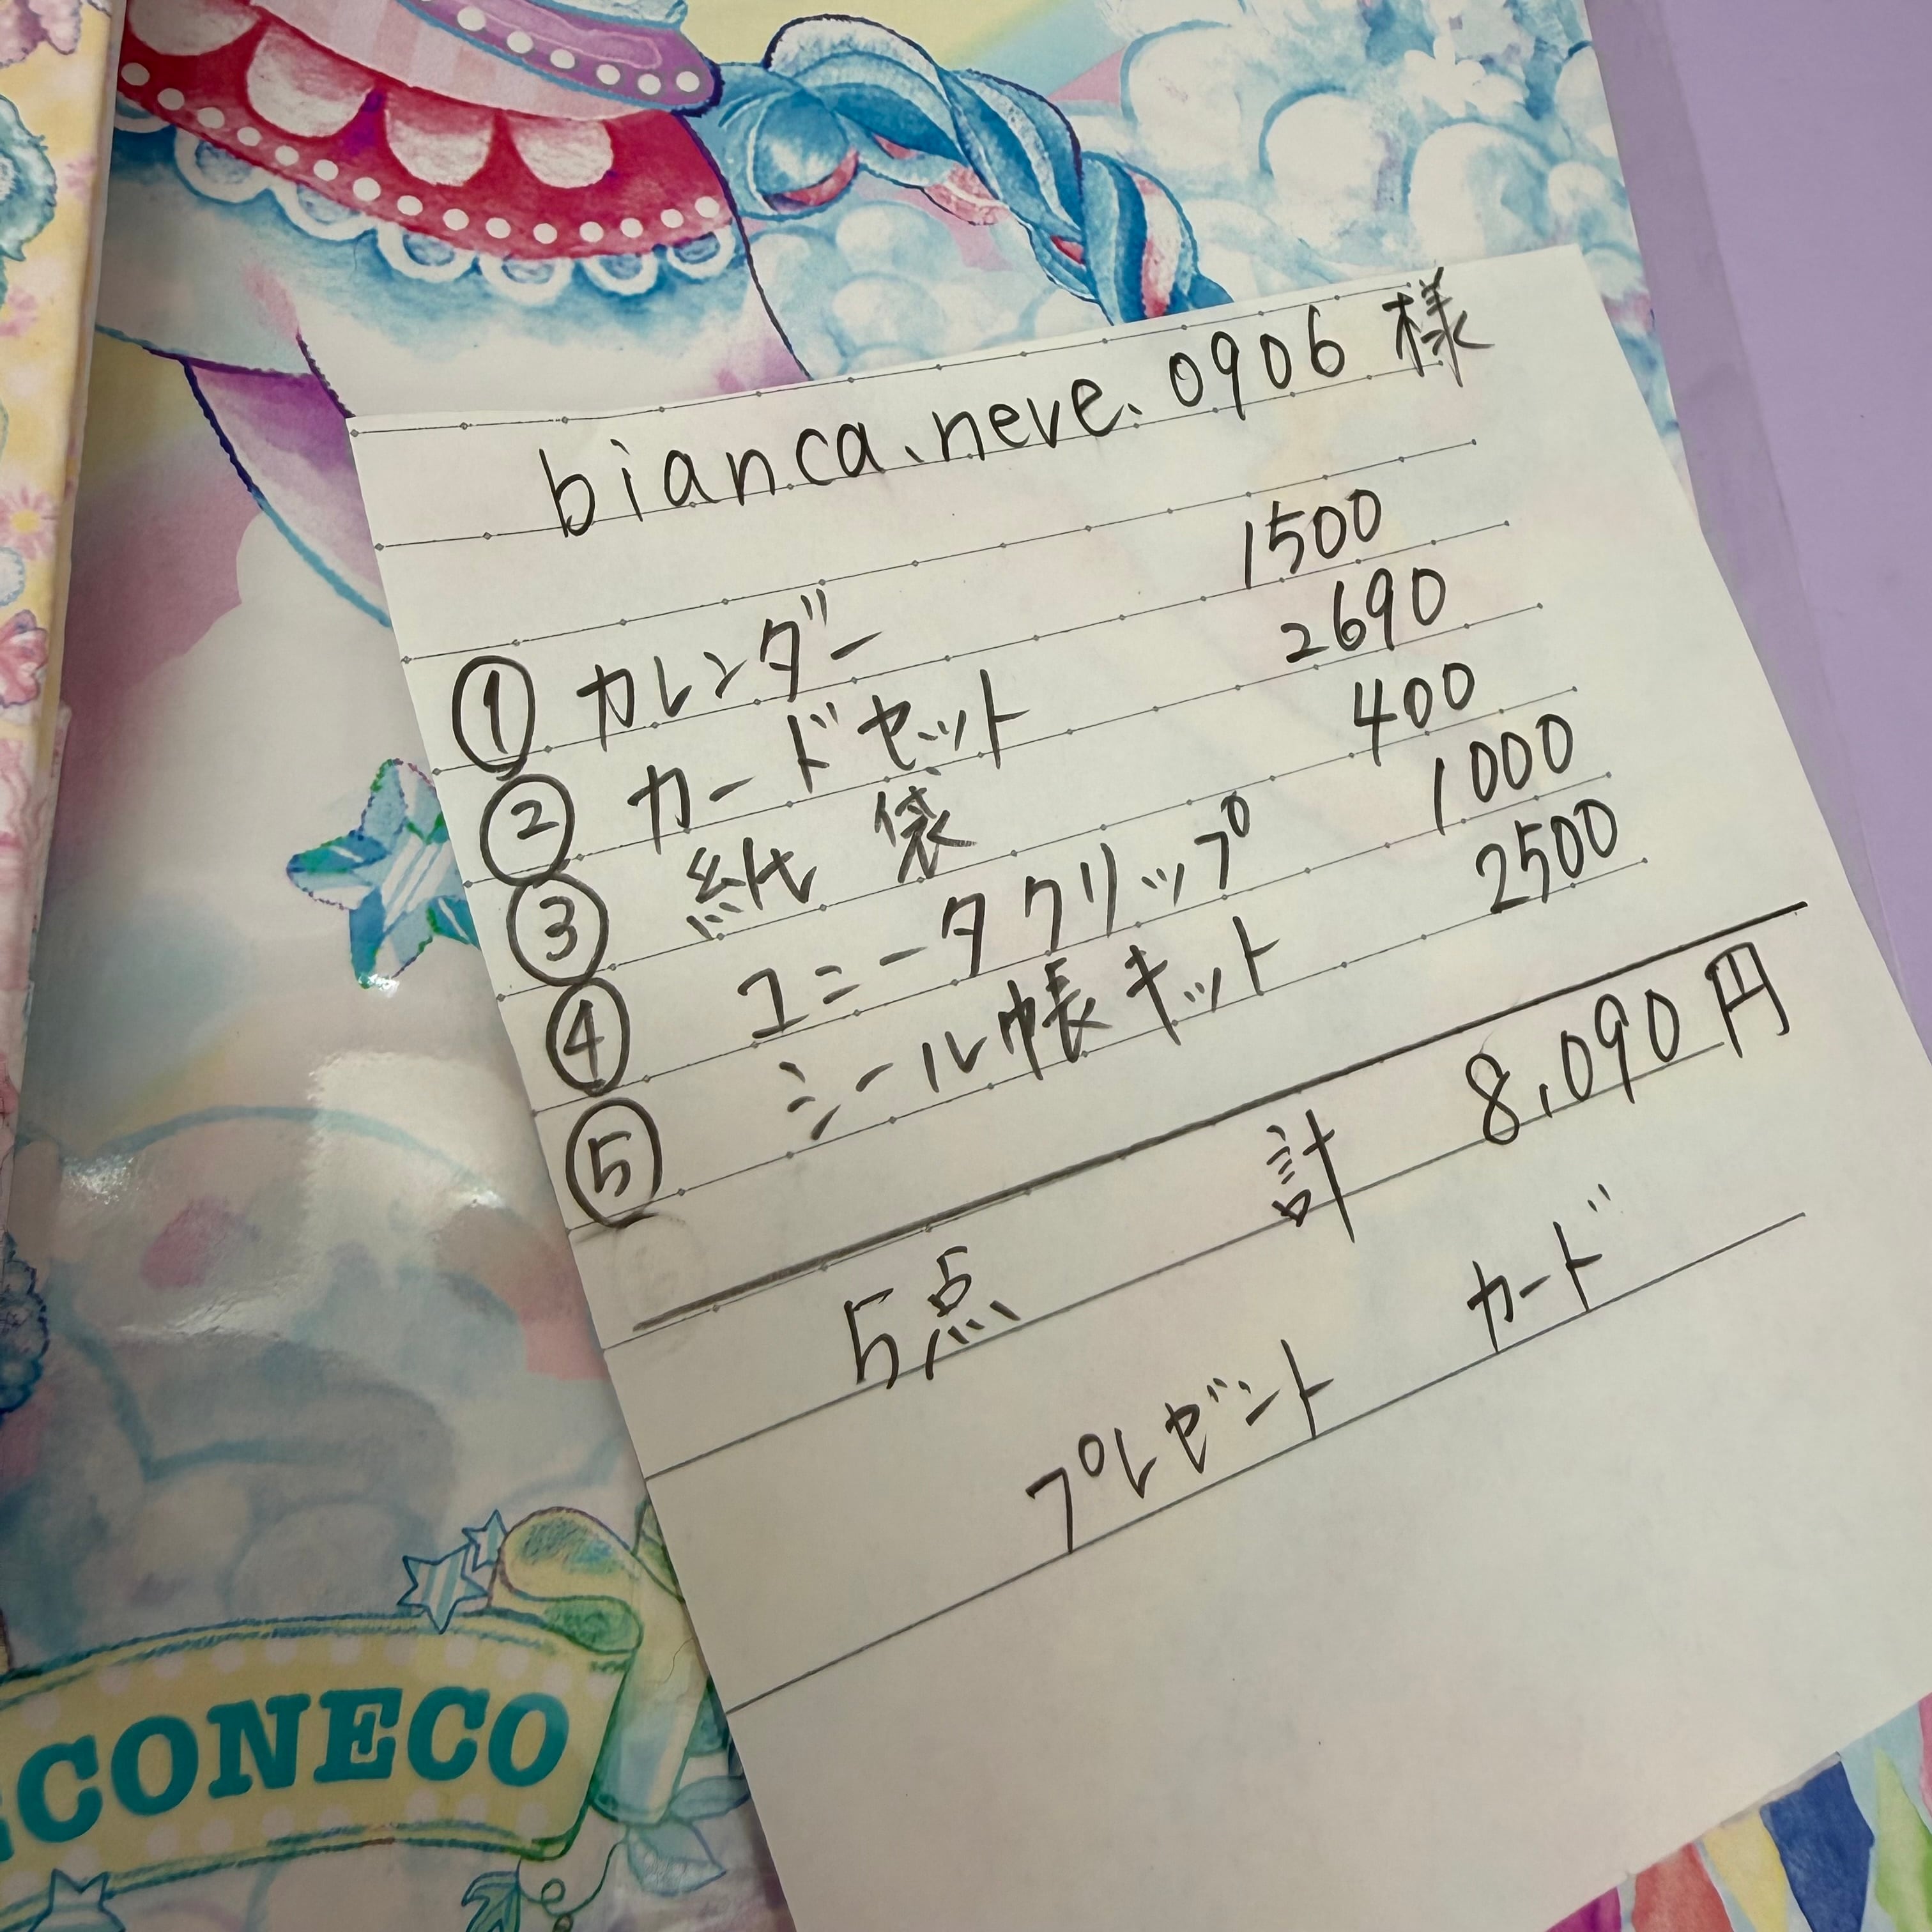 bianca、neve、0906 様
① カレンダー 1500
② カードセット 2690
③ 紙袋 400
④ ユニータクリップ 1000
⑤ シール帳キット 2500
5点 計 8,090円
プレゼント カード
CONECO